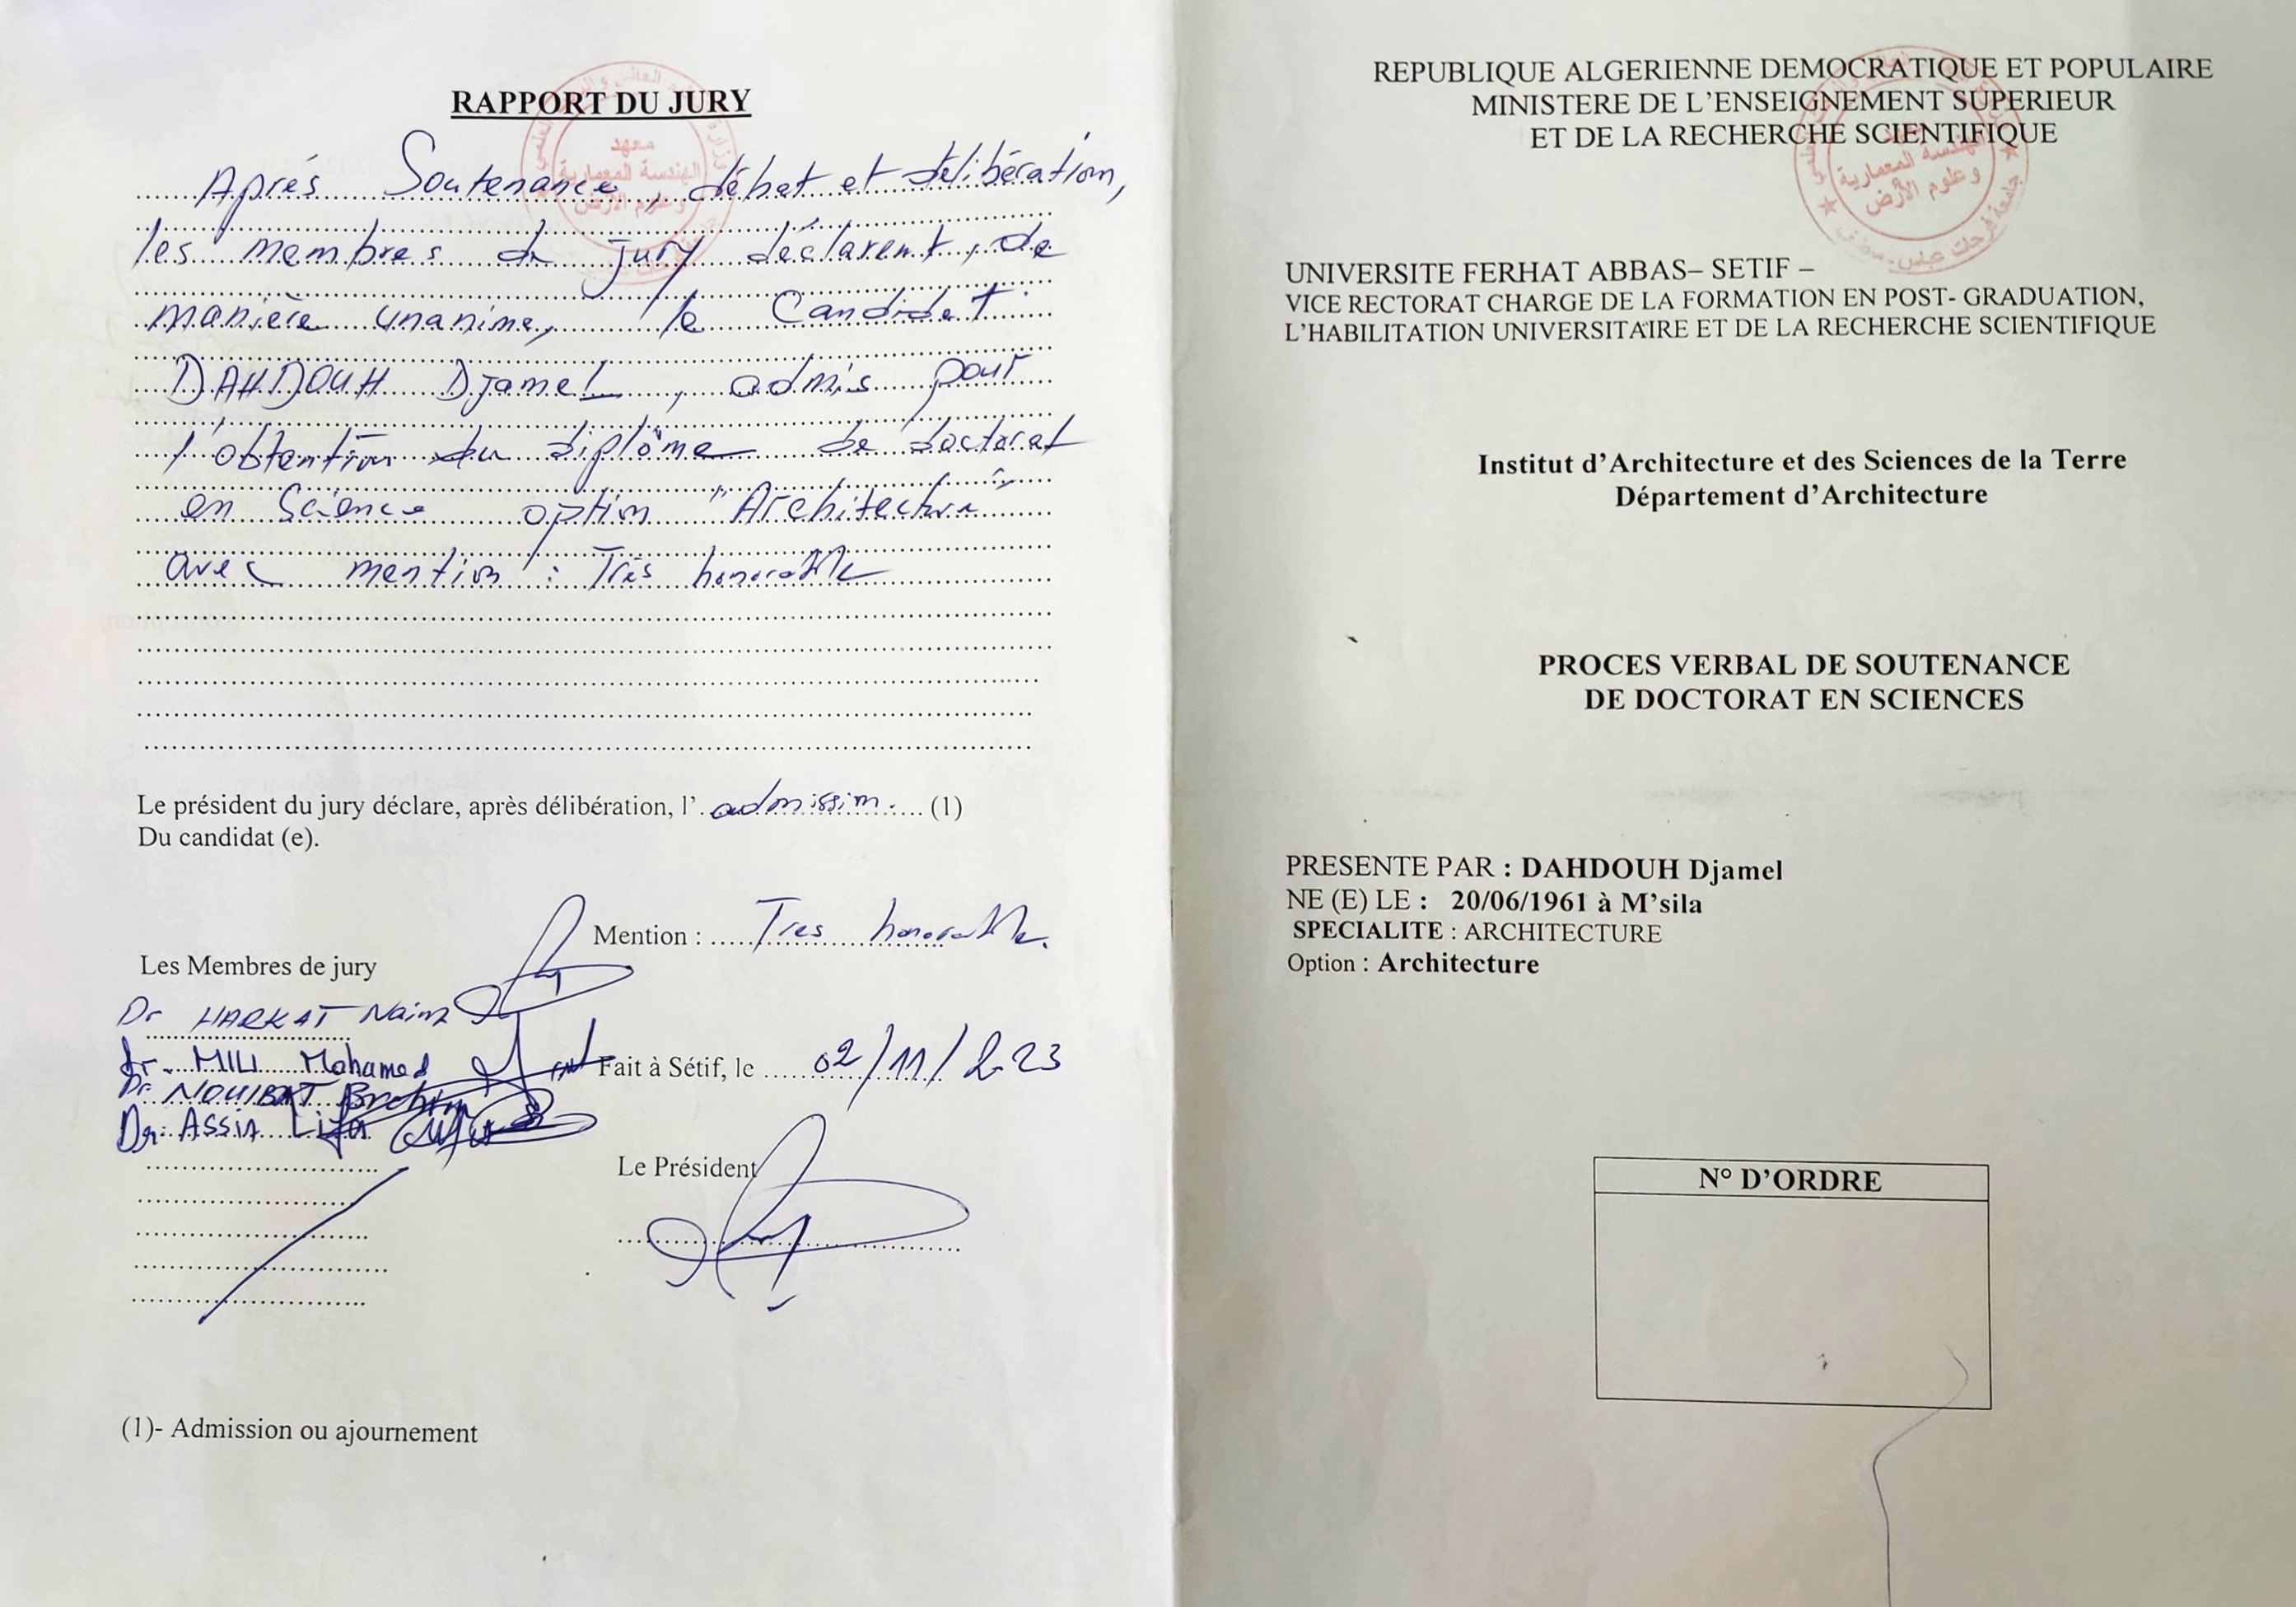 RAPPORT DU JURY
Après Soutenance, débat et délibération,
les membres du jury déclarent, de
manière unanime, le Candidat
DAHDOUH Djamel, admis pour
l'obtention du diplôme de doctorat
en Science option "Architecture"
avec mention : Très honorable
Le président du jury déclare, après délibération, l' admission. (1)
Du candidat (e).
Mention : Tres honorable.
Les Membres de jury
Dr HARKAT Naim
Dr. MILI Mohamed
Dr NOUIBAT Brahim
Dr. ASSIA Lifa
Fait à Sétif, le 02/11/2023
Le Président
(1)- Admission ou ajournement
REPUBLIQUE ALGERIENNE DEMOCRATIQUE ET POPULAIRE
MINISTERE DE L'ENSEIGNEMENT SUPERIEUR
ET DE LA RECHERCHE SCIENTIFIQUE
معهد
الهندسة المعمارية
وعلوم الأرض
UNIVERSITE FERHAT ABBAS– SETIF –
VICE RECTORAT CHARGE DE LA FORMATION EN POST- GRADUATION,
L'HABILITATION UNIVERSITAIRE ET DE LA RECHERCHE SCIENTIFIQUE
Institut d'Architecture et des Sciences de la Terre
Département d'Architecture
PROCES VERBAL DE SOUTENANCE
DE DOCTORAT EN SCIENCES
PRESENTE PAR : DAHDOUH Djamel
NE (E) LE : 20/06/1961 à M'sila
SPECIALITE : ARCHITECTURE
Option : Architecture
N° D'ORDRE